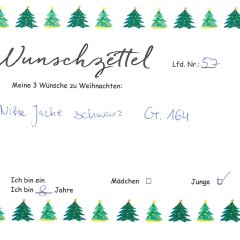 Wunschzettel Lfd. Nr.: 57
Meine 3 Wünsche zu Weihnachten:
Nike Jacke schwarz Gr. 164
Ich bin ein Mädchen ☐ Junge ☑
Ich bin 8 Jahre